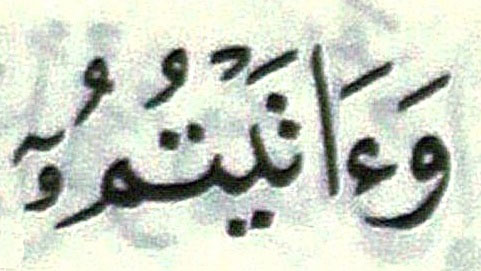 وَءَاتَيْتُمُۥٓ